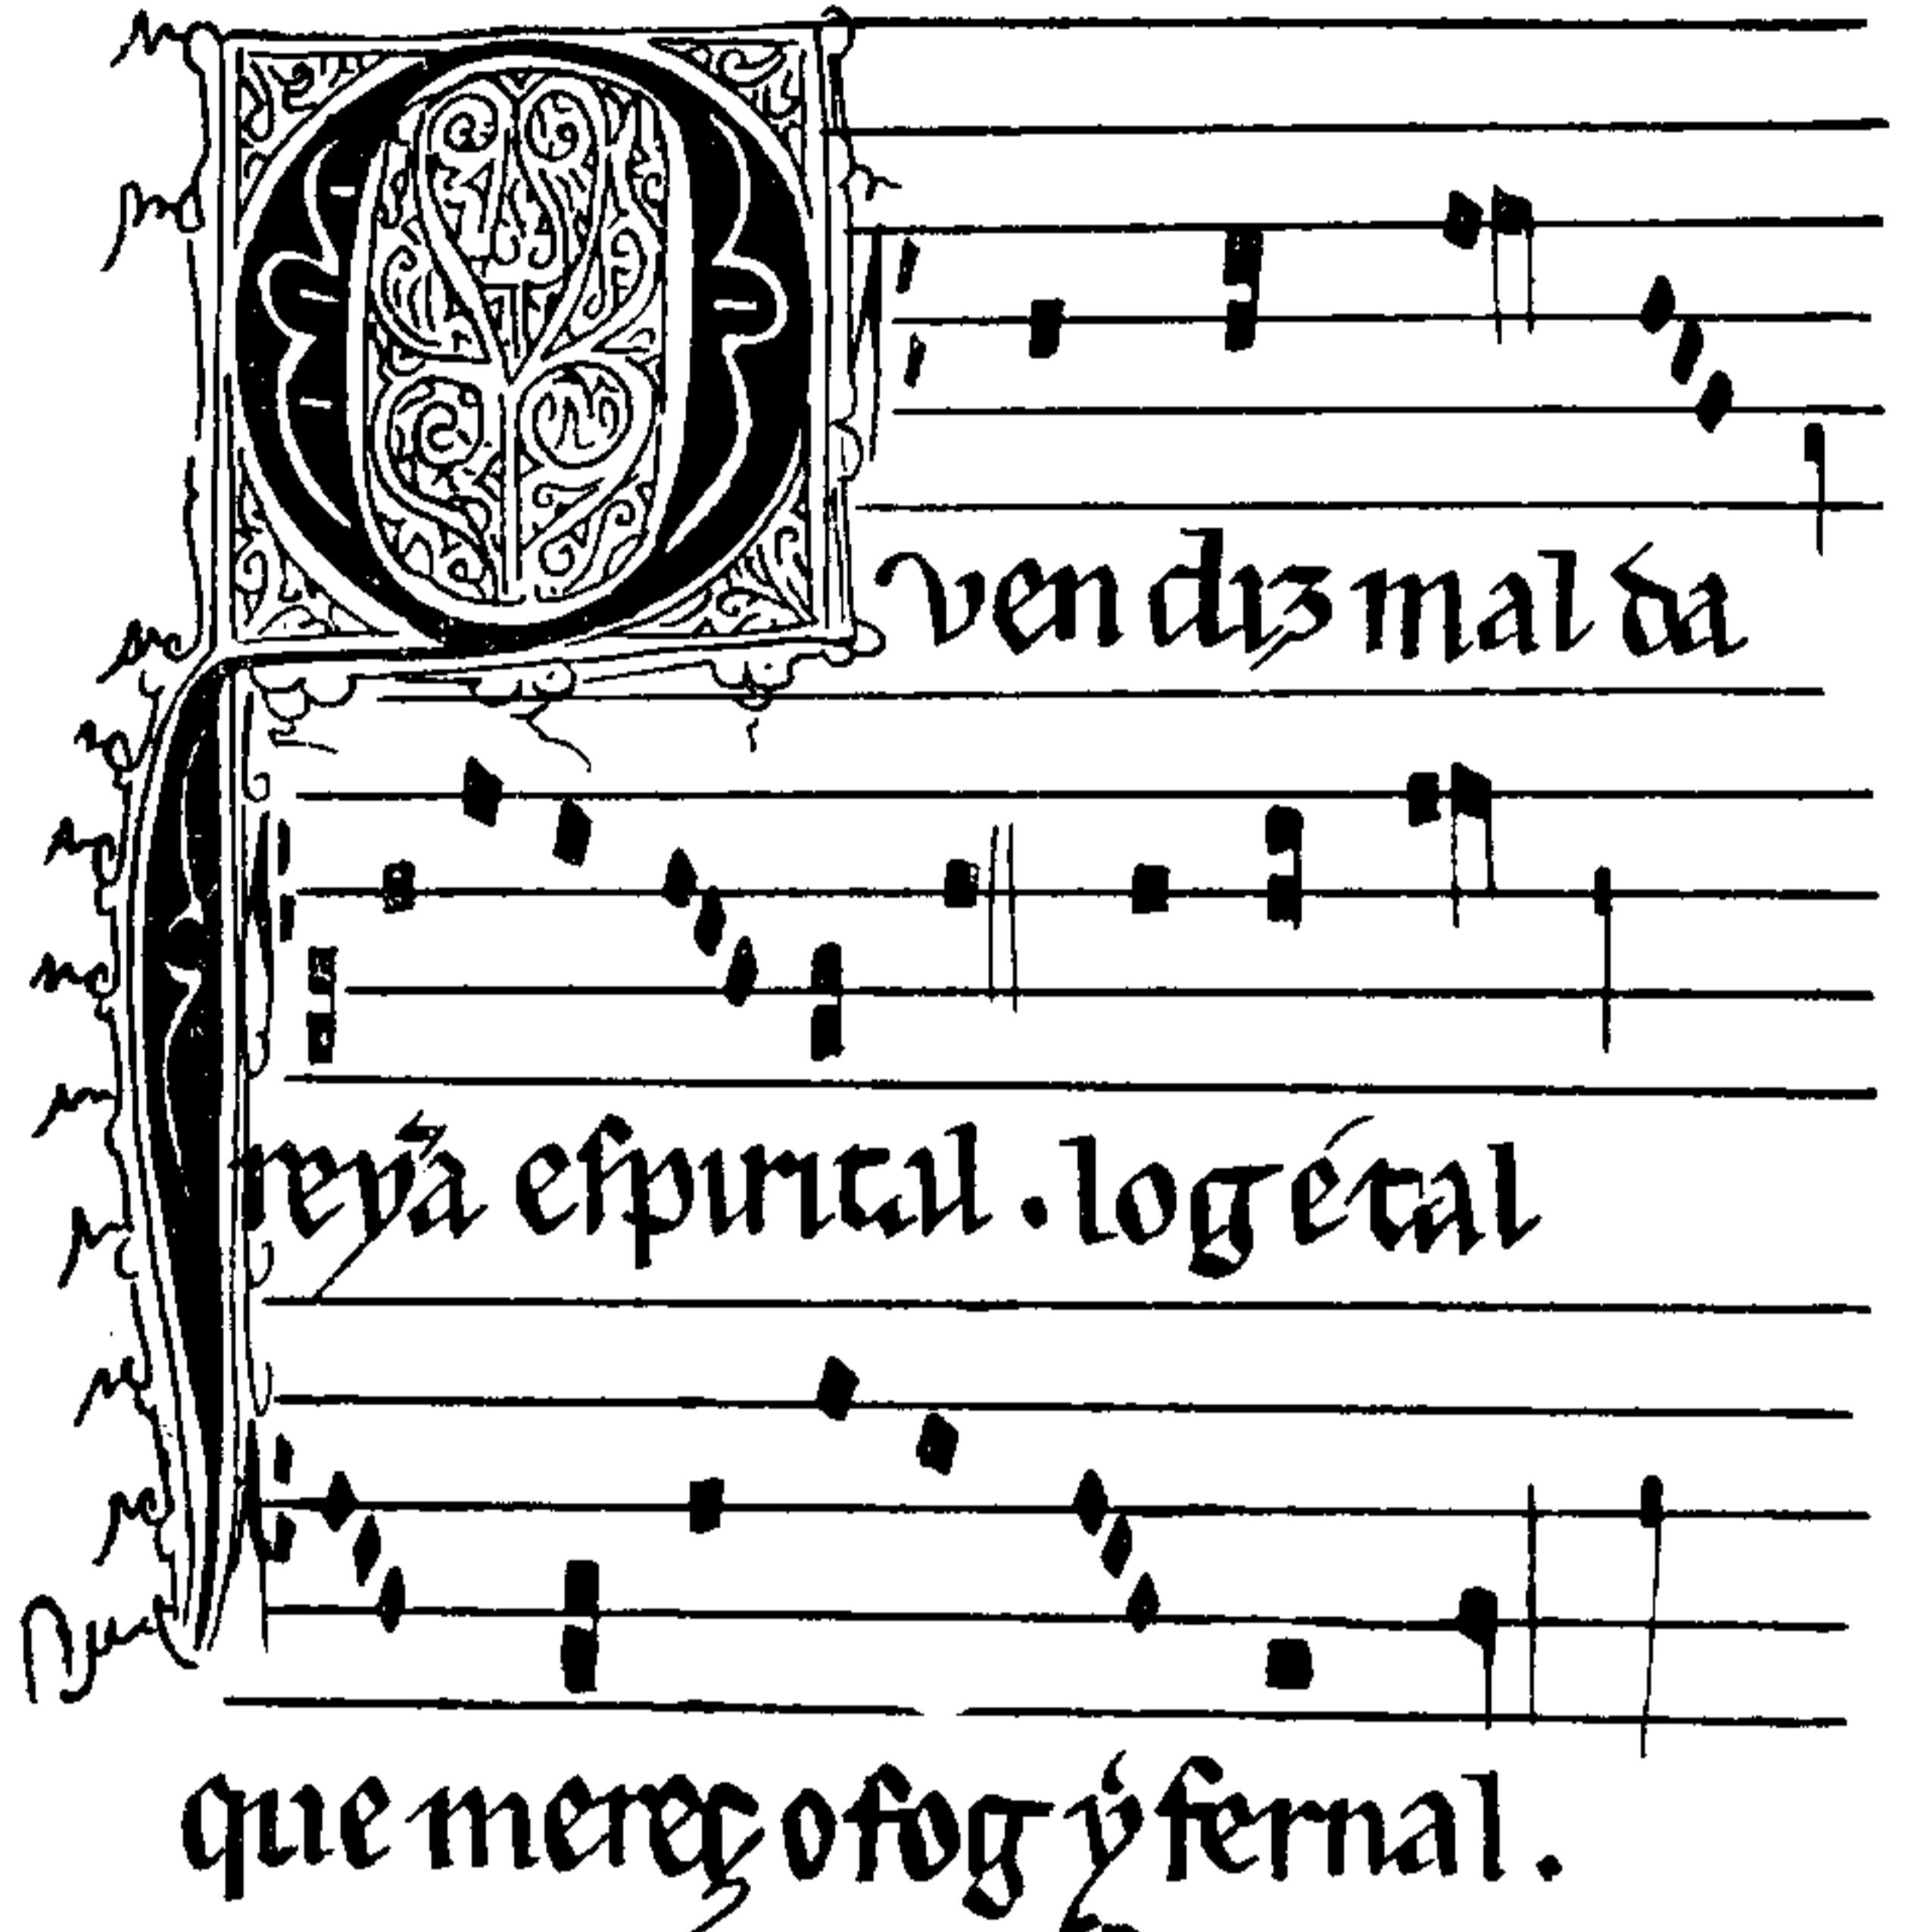 Quen diz mal da
reyỹa espirital . log é tal
que mereç o fog ÿfernal .